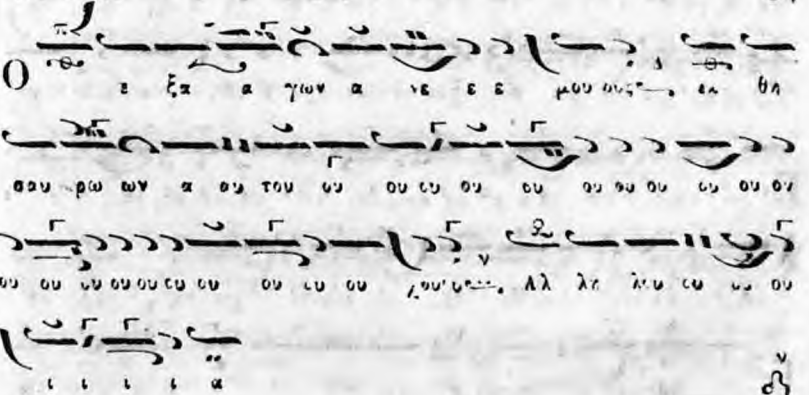 Ο ε ξα α γων α νε ε ε μου ους εκ θη
σαυ ρω ων α αυ του ου ου ου ου ου ου ου ου ου ου ου
ου ου ου ου ου ου ου ου ου ου Αλ λη λου ου ου ου
ι ι ι ι α